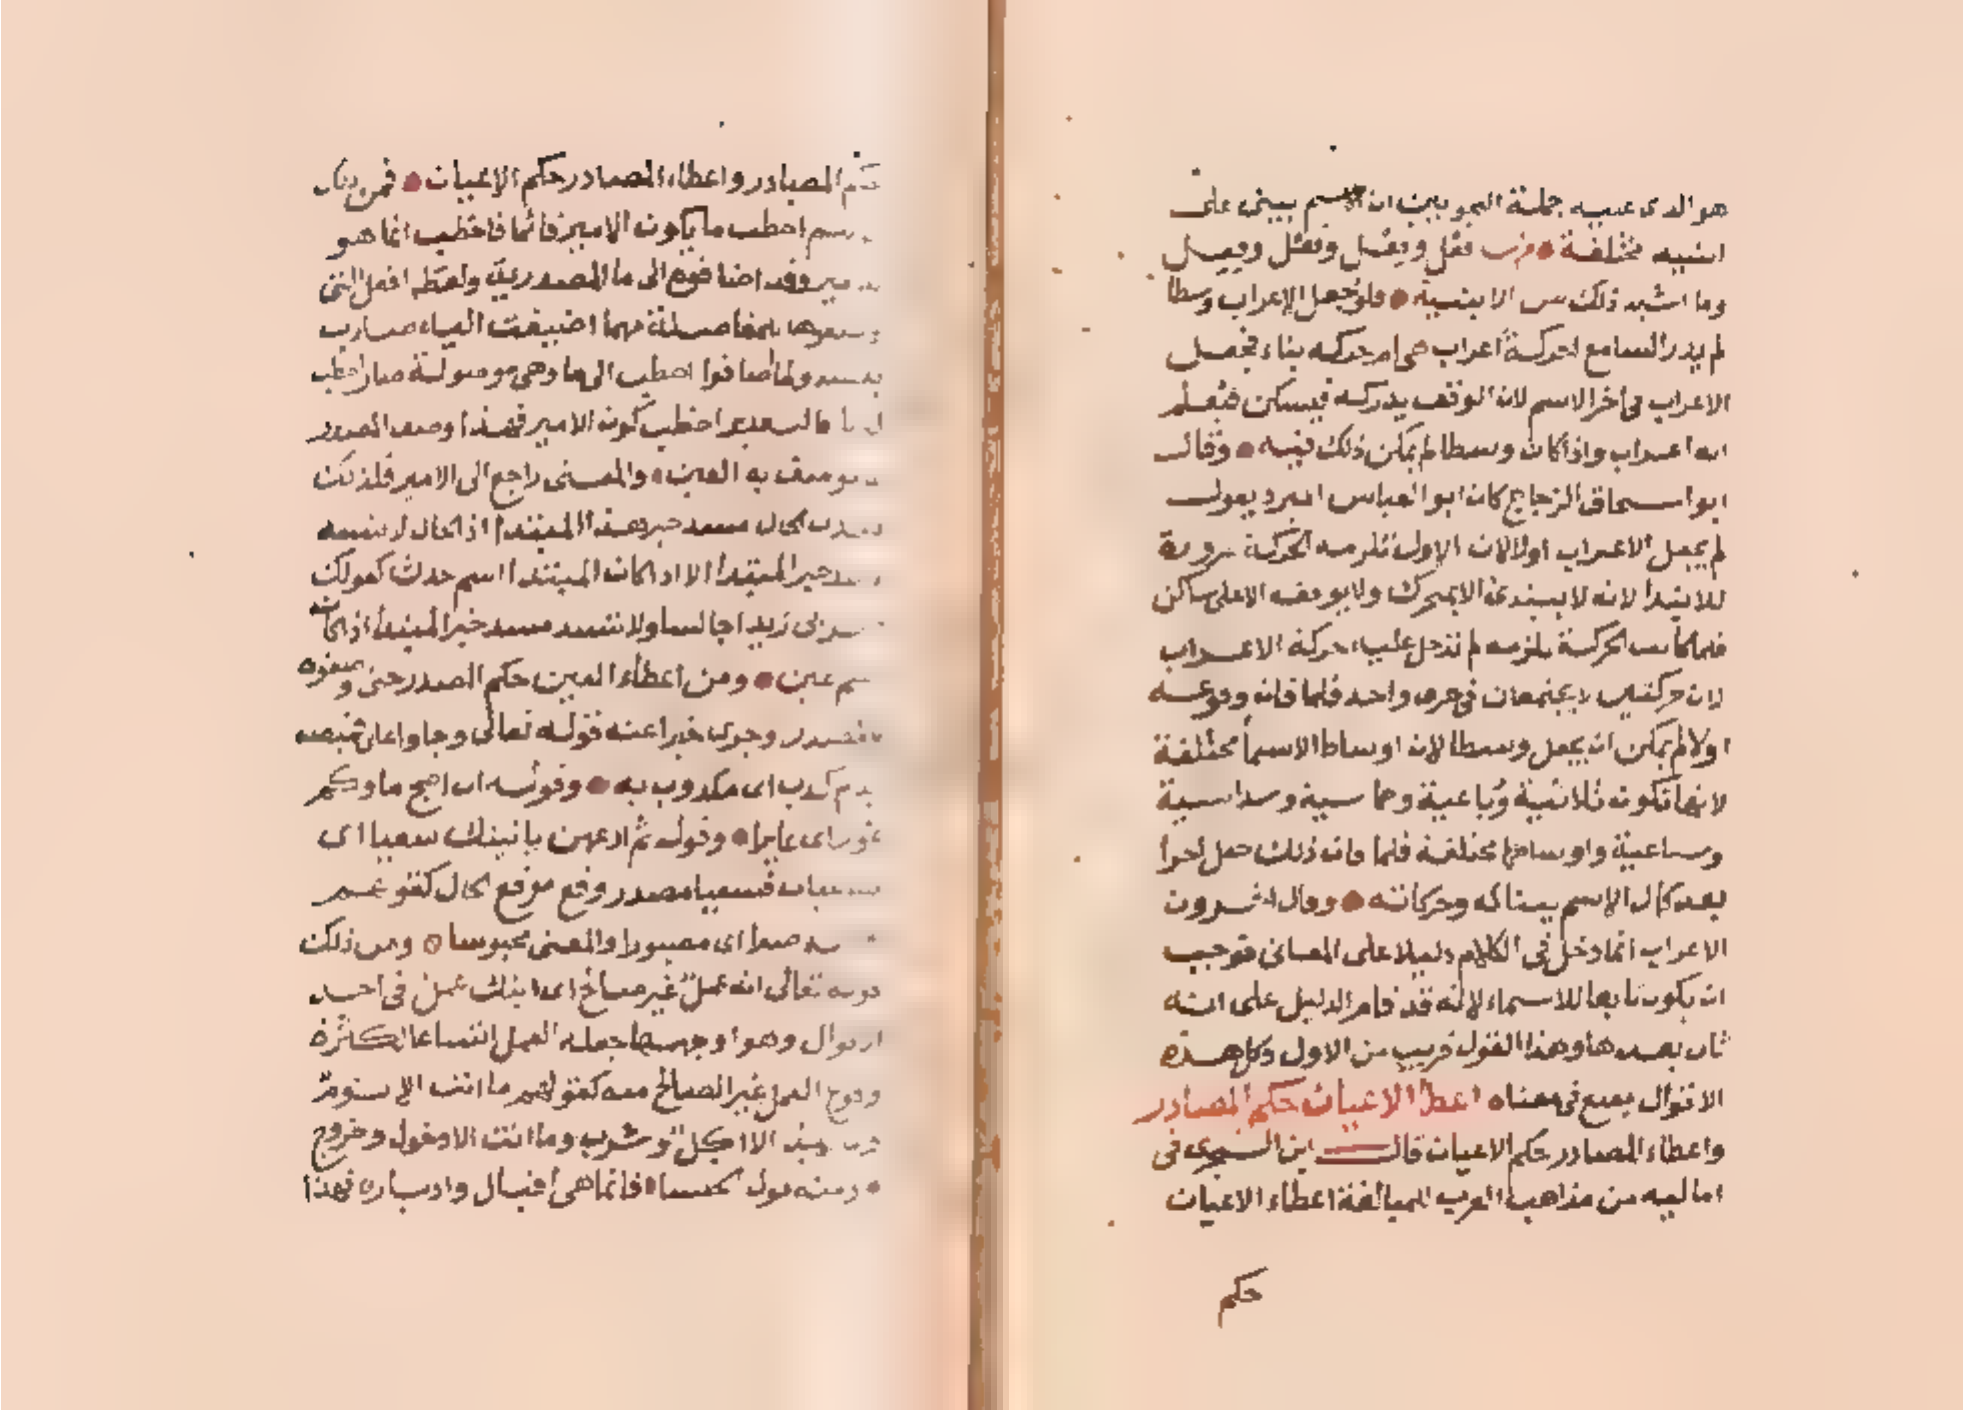 هو الذى عليه جملة النحويين ان الاسم يبنى على
ابنيه مختلفة منها فعل وفعل وفعل وفعيل
وما اشبه ذلك من الابنية فلو جعل الاعراب وسطا
لم يدر السامع احركة اعراب هى ام حركه بناء فجعل
الاعراب فى اخر الاسم لان الوقف يدركه فيسكن فيعلم
انه اعراب واذا كان وسطا لم يمكن ذلك فيه وقال
ابو اسحاق الزجاج كان ابو العباس المبرد يقول
لم يجعل الاعراب اولا لان الاول تلزمه الحركة ضرورة
للابتدا لانه لا يبتدئ الا بمتحرك ولا يوقف الا على ساكن
فلما كانت الحركة تلزمه لم تدخل عليه حركة الاعراب
لان حركتين لا يجتمعان فى حرف واحد فلما فات وقوعه
اولا لم يمكن ان يجعل وسطا لان اوساط الاسما مختلفة
لانها تكون ثلاثية ورباعية وخماسية وسداسية
وسباعية واوساطها مختلفة فلما فات ذلك جعل اخرا
بعد كمال الاسم ببنائه وحركاته وقال اخرون
الاعراب انما دخل فى الكلام دليلا على المعانى فوجب
ان يكون تابعا للاسماء لانه قد قام الدليل على انه
ثان بعدها وهذا القول قريب من الاول وكل هذه
الاقوال يقع فى معناه اعطا الاعيان حكم المصادر
واعطاء المصادر حكم الاعيان قال ابن الشجرى فى
اماليه من مذاهب العرب للمبالغة اعطاء الاعيان
حكم
حكم المصادر واعطاء المصادر حكم الاعيان فمن ذلك
احطب ما يكون الامير قائما فاخطب انما هو
وقد اضافوه الى ما المصدرية ولفظه افعل التى
مهما اضيفت اليه صارت
ولما اضافوا اخطب الى ما وهى موصولة صار اخطب
اخطب كون الامير فهذا وصف المصدر
يوصف به العين والمعنى راجع الى الامير فلذلك
الحال مسد خبر هذا المبتدا اذ الحال لا تسد
مسد خبر المبتدا الا اذا كان المبتدا اسم حدث كقولك
ضربى زيدا جالسا ولا تسد مسد خبر المبتدا اذا كان
اسم عين ومن اعطاء العين حكم المصدر حتى وصفوه
بالمصدر وجرى خبرا عنه قوله تعالى وجاوا على قميصه
بدم كذب اى مكذوب به وقوله ان اصبح ماوكم
غورا اى غايرا وقوله ثم ادعهن ياتينك سعيا اى
ساعيات فسعيا مصدر وقع موقع الحال كقولهم
صبرا اى مصبورا والمعنى محبوسا ومن ذلك
قوله تعالى انه عمل غير صالح اى ابنك عمل فى احد
الاقوال وهو اوجهها جعله العمل اتساعا لكثرة
وقوع العمل غير الصالح منه كقولهم ما انت الا نوم
الا اكل وشرب وما انت الا دخول وخروج
ومنه قول الخنسا فانما هى اقبال وادبار فهذا